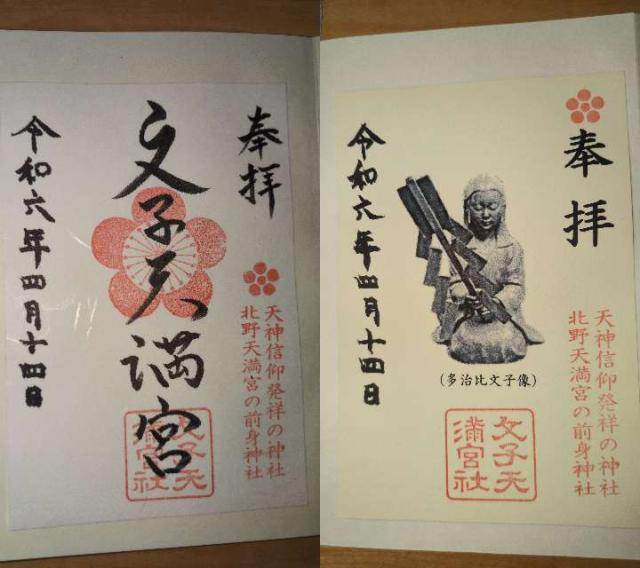 奉拝
天神信仰発祥の神社
北野天満宮の前身神社
文子天満宮
文子天
満宮社
令和六年四月十四日
奉拝
天神信仰発祥の神社
北野天満宮の前身神社
(多治比文子像)
文子天
満宮社
令和六年四月十四日